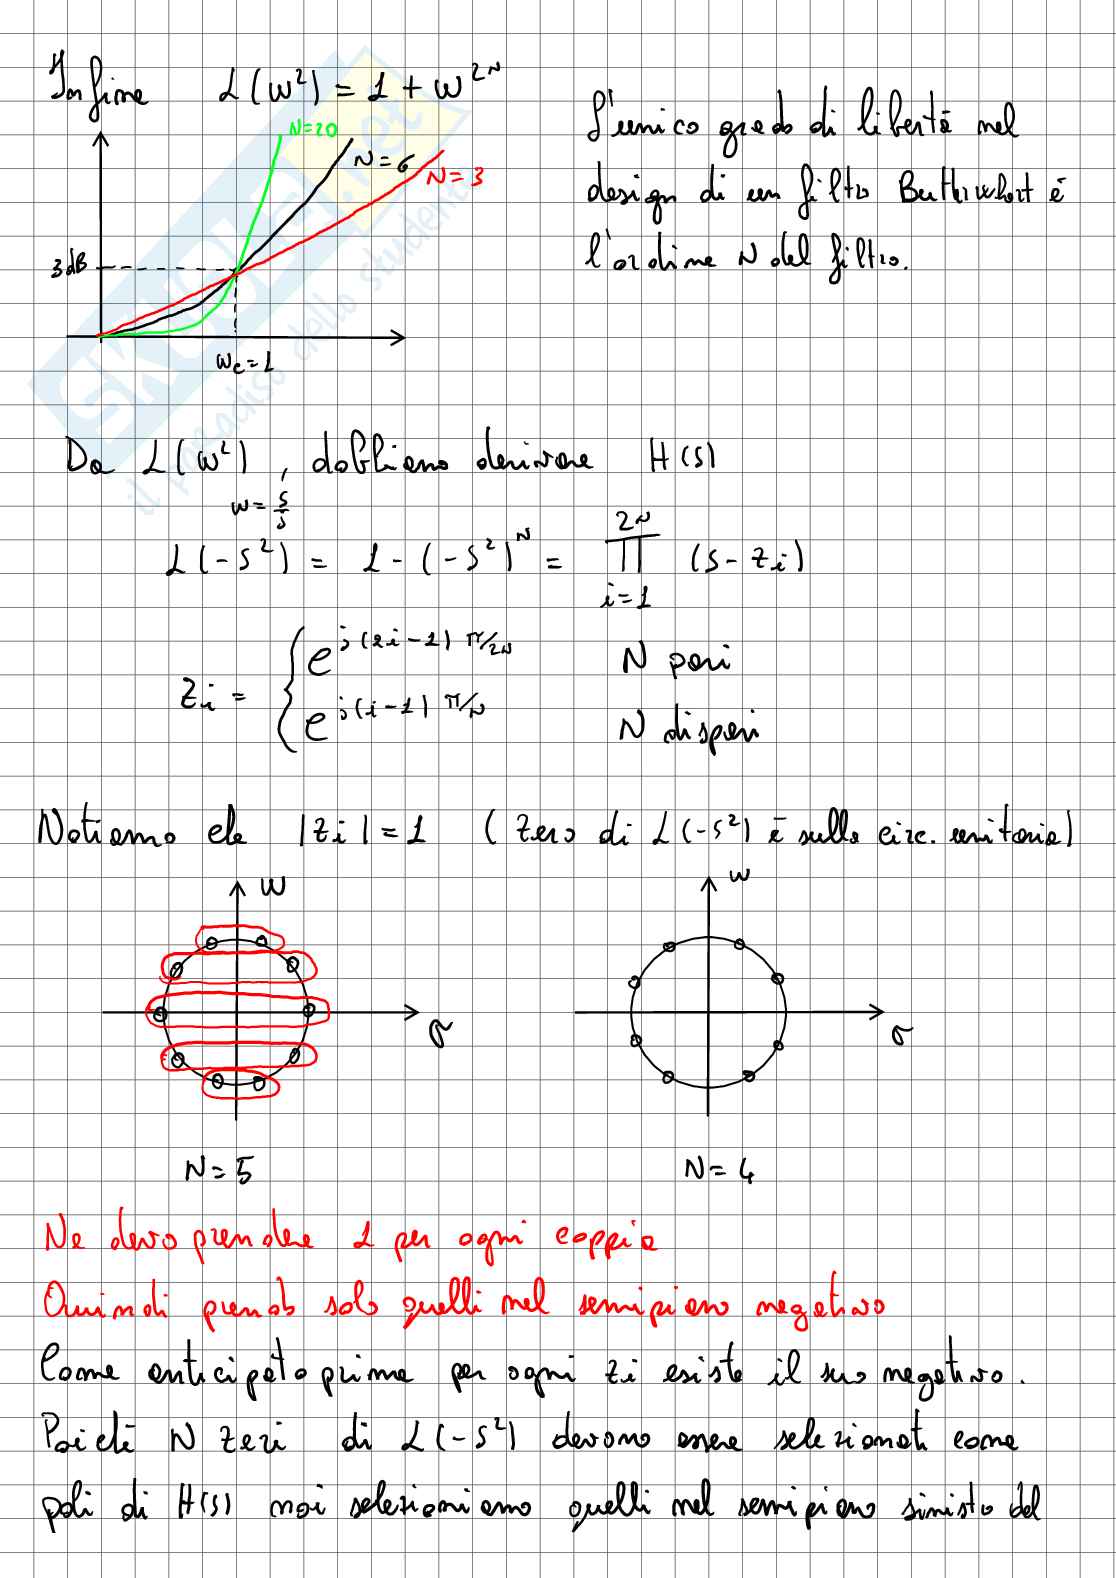 Infine L(ω²) = 1 + ω^{2N}
N=20
N=6
N=3
3dB
ω_c=1
L'unico grado di libertà nel
design di un filtro Butterwhort è
l'ordine N del filtro.
Da L(ω²), dobbiamo derivare H(s)
ω = s/j
L(-s²) = 1 - (-s²)^N = ∏_{i=1}^{2N} (s - z_i)
z_i = { e^{j(2i-1) π/2N} N pari
e^{j(i-1) π/N} N dispari
Notiamo che |z_i| = 1 (zero di L(-s²) è sulla circ. unitaria)
ω
σ
N=5
ω
σ
N=4
Ne devo prendere 1 per ogni coppia
Quindi prendo solo quelli nel semipiano negativo
Come anticipato prima per ogni z_i esiste il suo negativo.
Poiché N zeri di L(-s²) devono essere selezionati come
poli di H(s) noi selezioniamo quelli nel semipiano sinisto del
SKUOLA.net
il paradiso dello studente